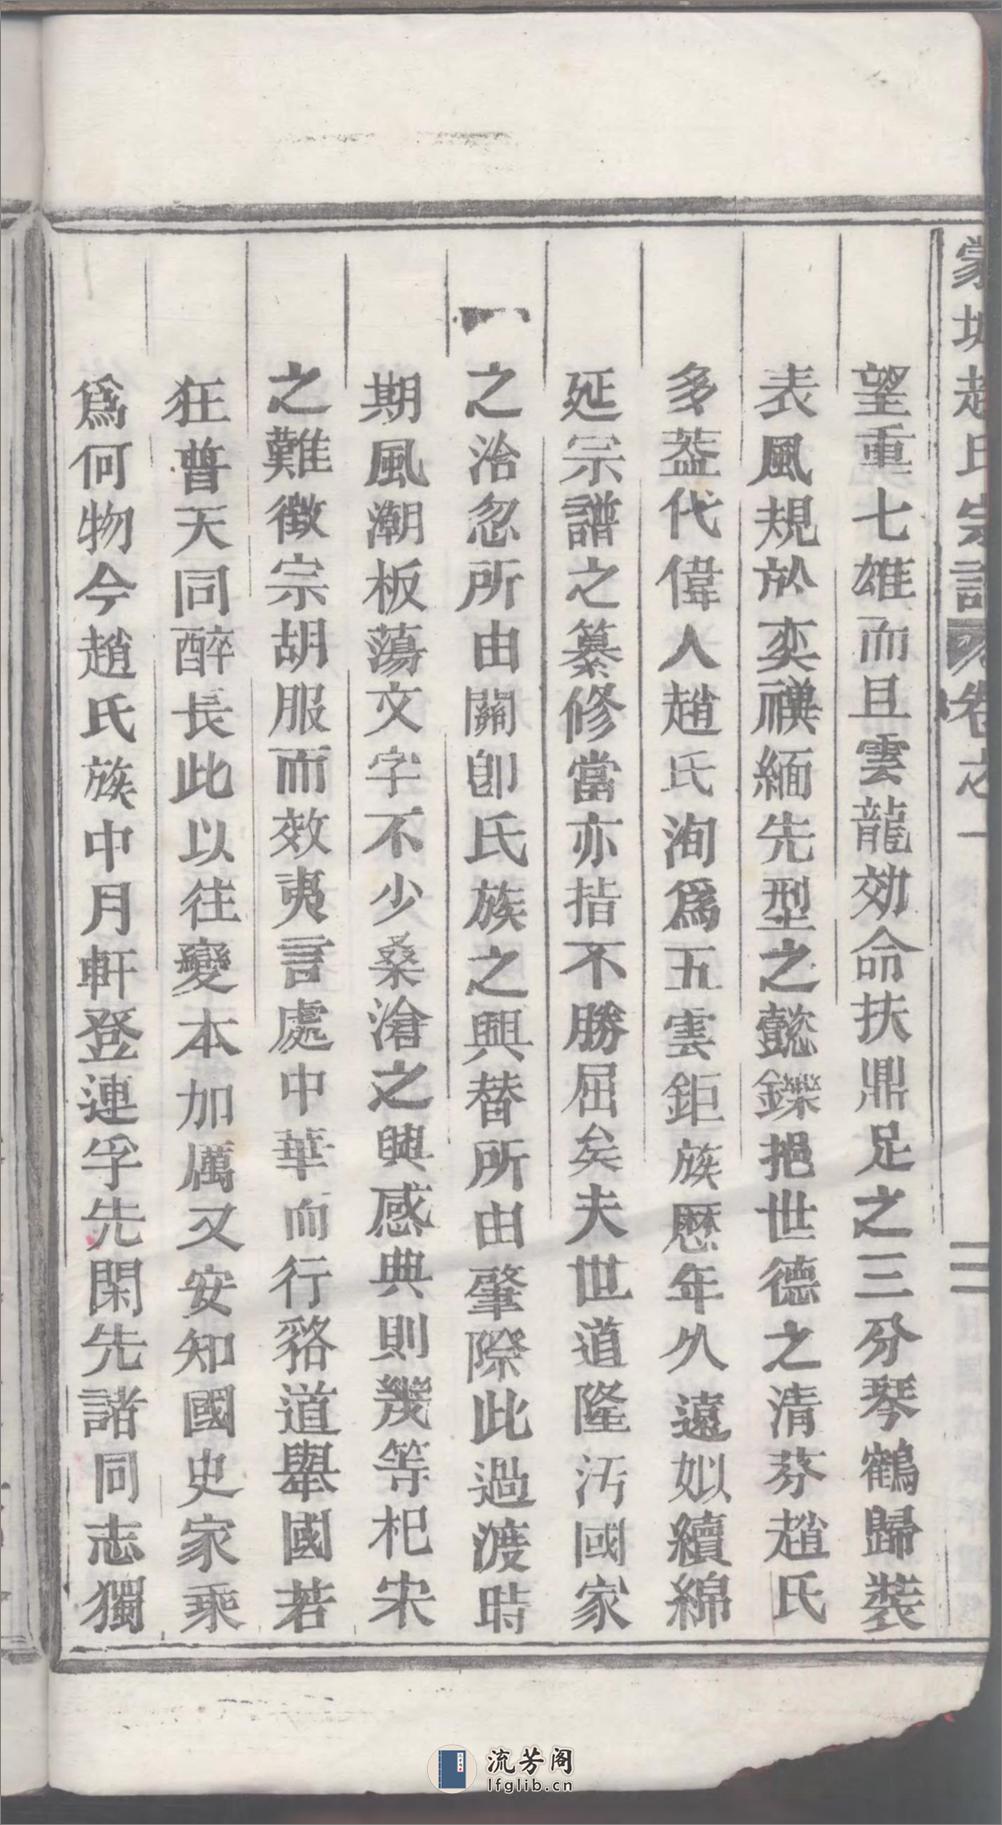 蒙城趙氏宗譜 卷之一 二
望重七雄而且雲龍効命扶鼎足之三分琴鶴歸裝
表風規於奕禩緬先型之懿鑠挹世德之清芬趙氏
多蓋代偉人趙氏洵爲五雲鉅族歷年久遠姒續綿
延宗譜之纂修當亦指不勝屈矣夫世道隆汚國家
之治忽所由關卽氏族之興替所由肇際此過渡時
期風潮板蕩文字不少桑滄之興感典則幾等杞宋
之難徵宗胡服而效夷言處中華而行貉道舉國若
狂普天同醉長此以往變本加厲又安知國史家乘
爲何物今趙氏族中月軒登連孚先閑先諸同志獨
流芳阁
lfglib.cn